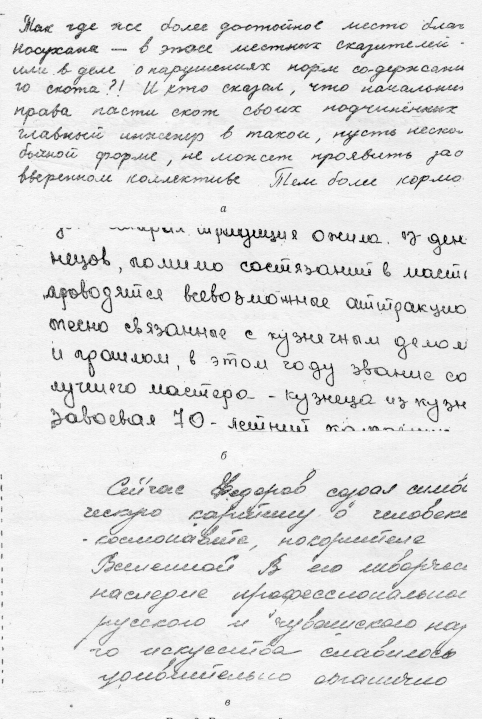 Так где же более достойное место благ
носухана — в эпосе местных сказителей -
или в деле о нарушениях норм содержани
го скота?! И кто сказал, что начальник
права пасти скот своих подчинённых
главный инженер в такой, пусть неско
бычной форме, не может проявить заб
вверенном коллективе Тем более кормо
а
традиция ожила. В ден
нецов, помимо состязаний в масте
проводятся всевозможные аттракцио
тесно связанные с кузнечным делом
и прошлом, в этом году звание са
лучшего мастера - кузнеца из кузн
завоевал 70-летний
б
Сейчас Федоров создал симво
ческую картину о человеке
- космонавте, покорителе
Вселенной В его творчес
наследие профессиональног
русского и чувашского нар
го искусства славилось
удивительно органично
в